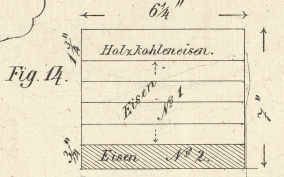 6¼"
1¾"
Holzkohleneisen.
Fig. 14.
Eisen
Nº 1
7"
¾"
Eisen Nº 2.